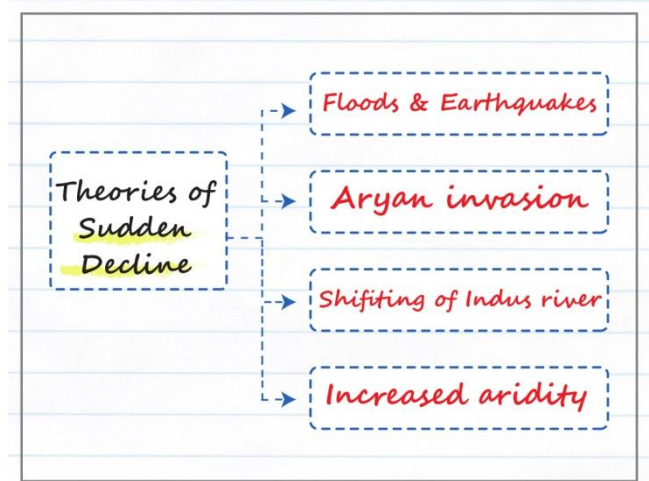 Theories of
Sudden
Decline
Floods & Earthquakes
Aryan invasion
Shifiting of Indus river
Increased aridity